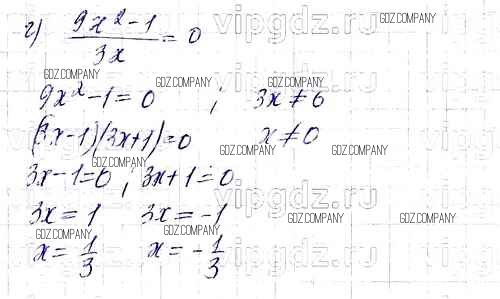 г) (9x² - 1)/(3x) = 0
9x² - 1 = 0 ; 3x ≠ 0
(3x - 1)(3x + 1) = 0 x ≠ 0
3x - 1 = 0 ; 3x + 1 = 0
3x = 1 3x = -1
x = 1/3 x = -1/3
vipgdz.ru
vipgdz.ru
vipgdz.ru
vipgdz.ru
GDZ.COMPANY
GDZ.COMPANY
GDZ.COMPANY
GDZ.COMPANY
GDZ.COMPANY
GDZ.COMPANY
GDZ.COMPANY
GDZ.COMPANY
GDZ.COMPANY
GDZ.COMPANY
GDZ.COMPANY